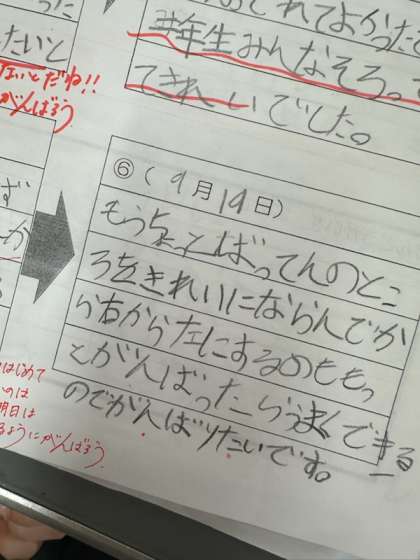 てよかった
年生みんなそろ。
てきれいでした。
たいと
たいとだね!!
がんばろう
⑥（9月19日）
もうちょっとばってんのとこ
ろをきれいにならんでか
ら右から左にするのももっ
とがんばったらうまくできる
のでがんばりたいです。
はじめて
のは
明日は
ようにがんばろう